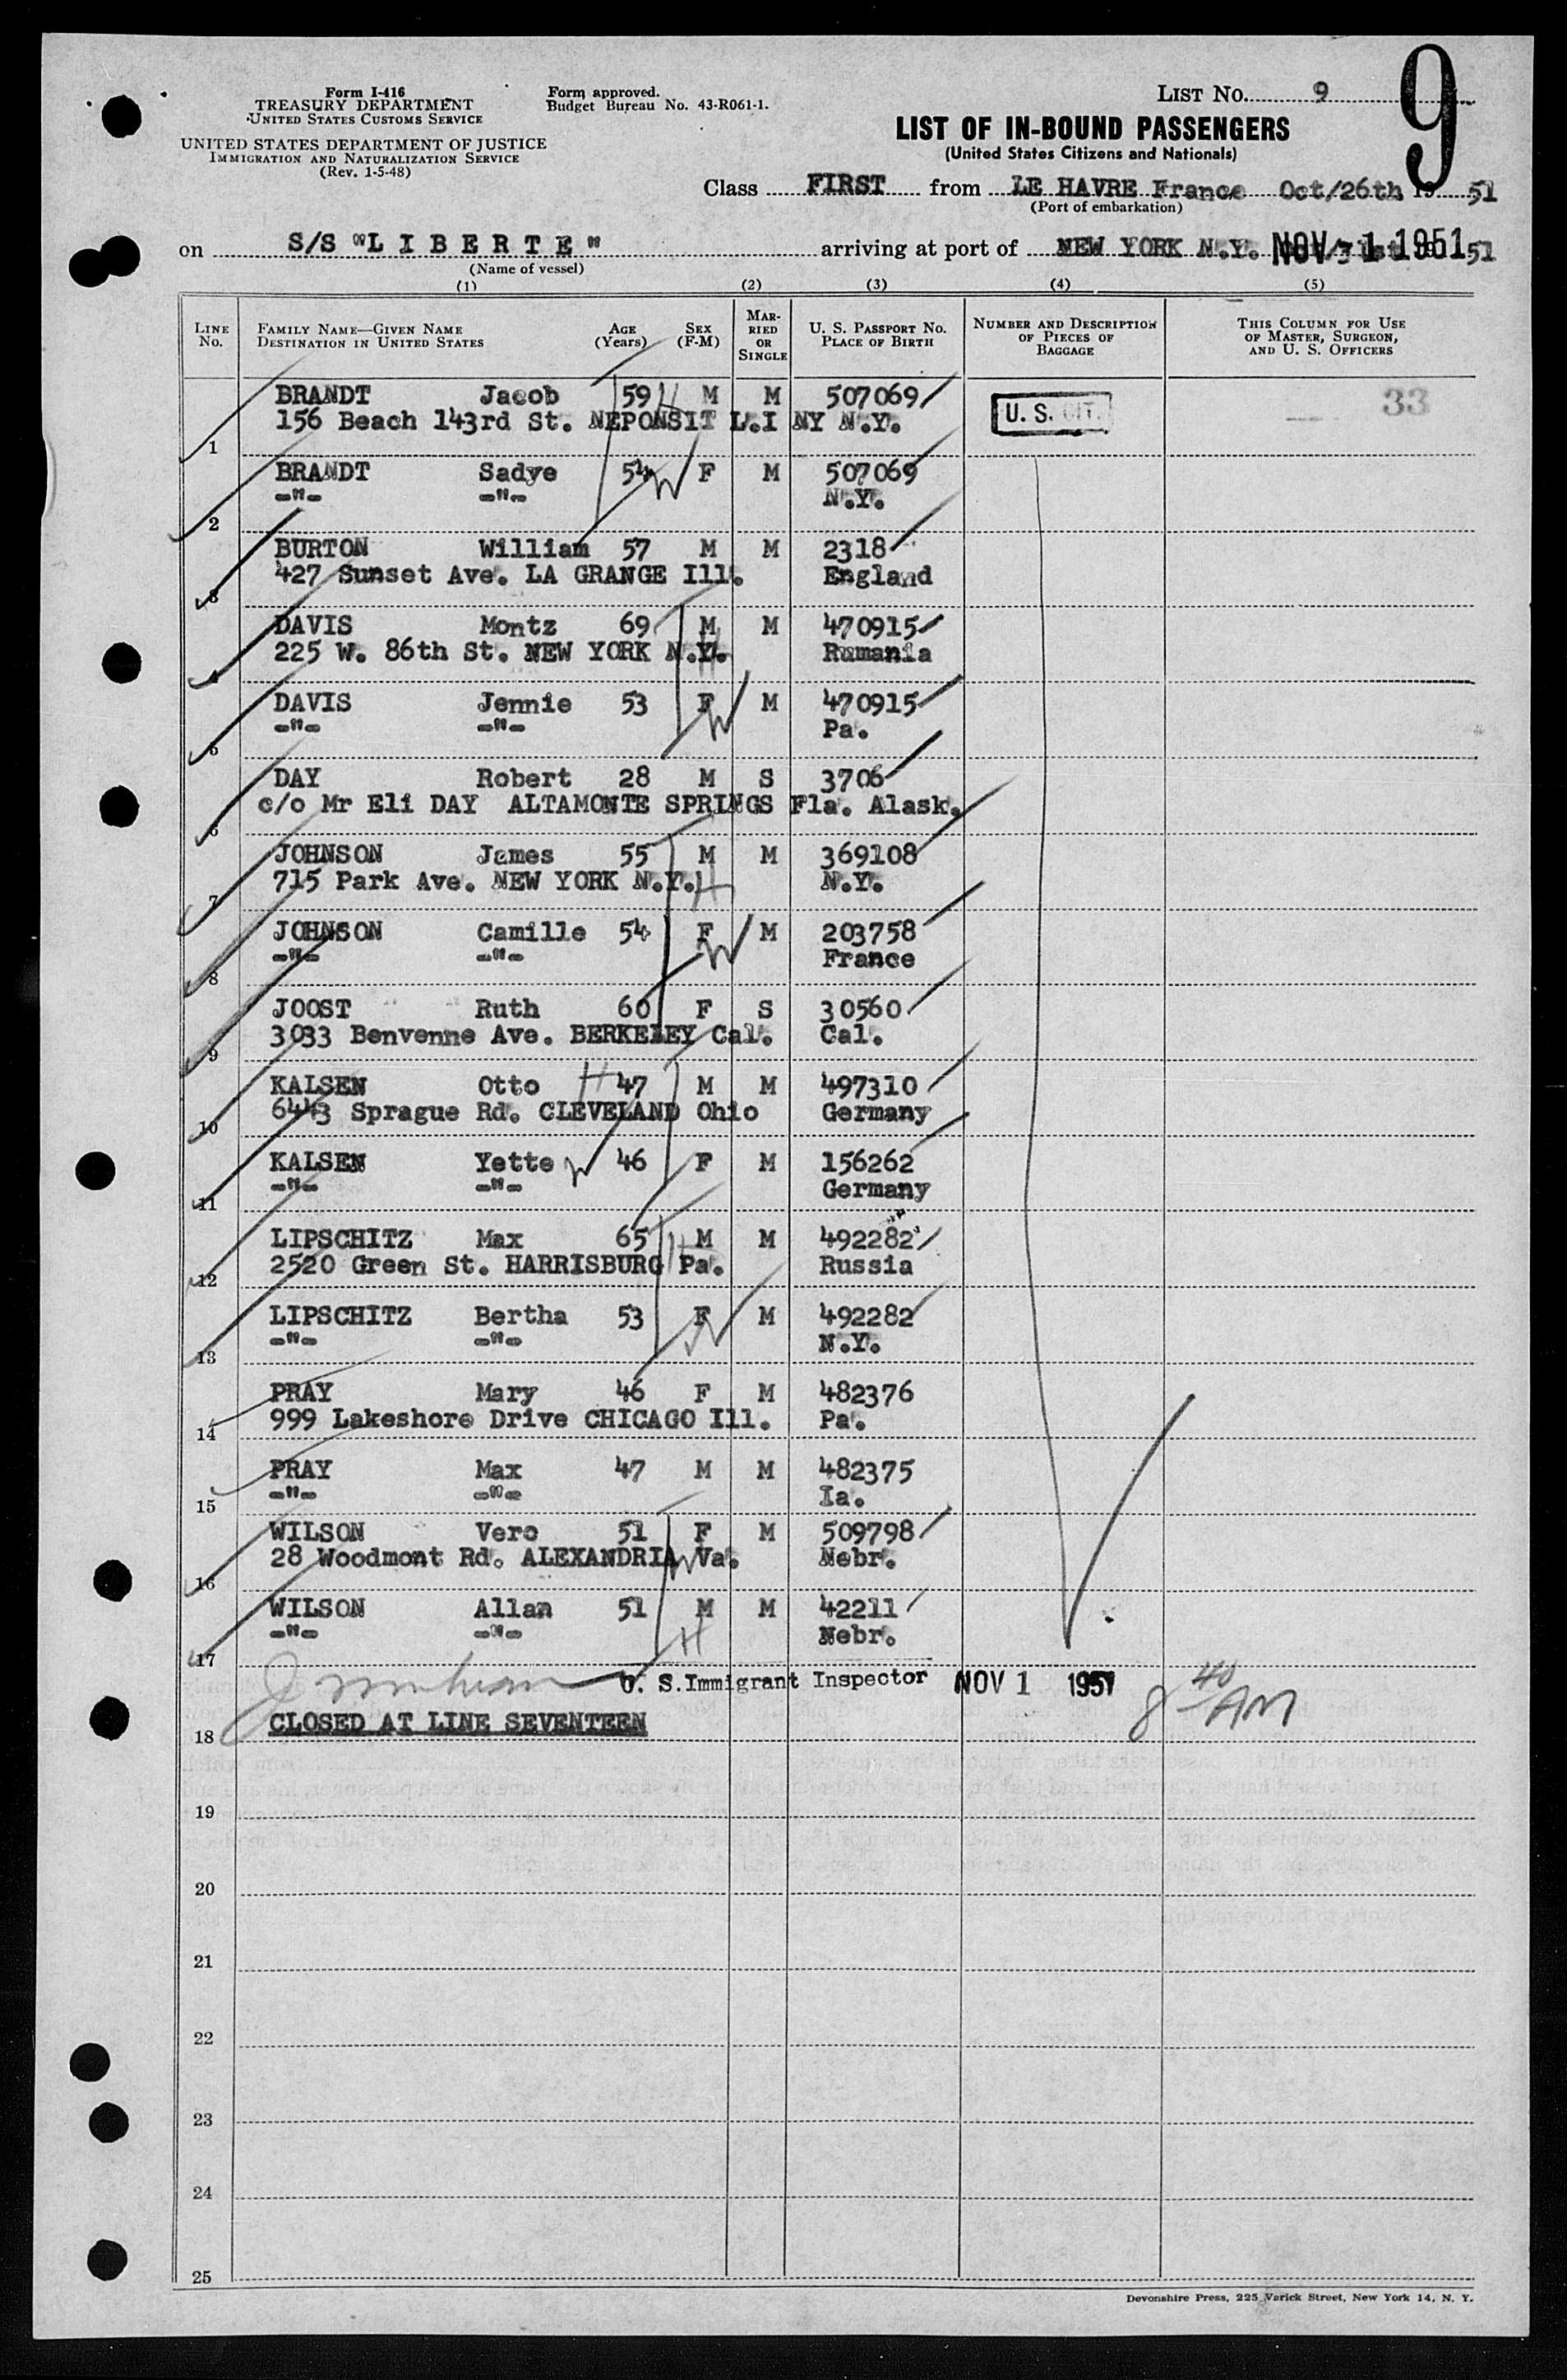 Form I-416
TREASURY DEPARTMENT
UNITED STATES CUSTOMS SERVICE
UNITED STATES DEPARTMENT OF JUSTICE
IMMIGRATION AND NATURALIZATION SERVICE
(Rev. 1-5-48)
Form approved.
Budget Bureau No. 43-R061-1.
LIST No. 9
9
LIST OF IN-BOUND PASSENGERS
(United States Citizens and Nationals)
Class FIRST from LE HAVRE France Oct/26th 19 51
(Port of embarkation)
on S/S "L I B E R T E" arriving at port of NEW YORK N.Y. NOV - 1 1951 51
(Name of vessel)
(1) (2) (3) (4) (5)
LINE No. FAMILY NAME—GIVEN NAME DESTINATION IN UNITED STATES AGE (Years) SEX (F-M) MARRIED OR SINGLE U. S. PASSPORT No. PLACE OF BIRTH NUMBER AND DESCRIPTION OF PIECES OF BAGGAGE THIS COLUMN FOR USE OF MASTER, SURGEON, AND U. S. OFFICERS
BRANDT Jacob 59 H M M 507069 U. S. CIT. 33
1 156 Beach 143rd St. NEPONSIT L.I NY N.Y.
BRANDT Sadye 54 W F M 507069
2 -"- -"- N.Y.
BURTON William 57 M M 2318
3 427 Sunset Ave. LA GRANGE Ill. England
DAVIS Montz 69 M M 470915
4 225 W. 86th St. NEW YORK N.Y. H Rumania
DAVIS Jennie 53 F W M 470915
5 -"- -"- Pa.
DAY Robert 28 M S 3706
6 c/o Mr Eli DAY ALTAMONTE SPRINGS Fla. Alask.
JOHNSON James 55 M M 369108
7 715 Park Ave. NEW YORK N.Y. H N.Y.
JOHNSON Camille 54 F W M 203758
8 -"- -"- France
JOOST Ruth 60 F S 30560
9 3033 Benvenne Ave. BERKELEY Cal. Cal.
KALSEN Otto H 47 M M 497310
10 6443 Sprague Rd. CLEVELAND Ohio Germany
KALSEN Yette W 46 F M 156262
11 -"- -"- Germany
LIPSCHITZ Max 65 H M M 492282
12 2520 Green St. HARRISBURG Pa. Russia
LIPSCHITZ Bertha 53 F W M 492282
13 -"- -"- N.Y.
PRAY Mary 46 F M 482376
14 999 Lakeshore Drive CHICAGO Ill. Pa.
PRAY Max 47 M M 482375
15 -"- -"- Ia.
WILSON Vero 51 F M 509798
16 28 Woodmont Rd. ALEXANDRIA W Va. Nebr.
WILSON Allan 51 M M 42211
17 -"- -"- H Nebr.
U. S. Immigrant Inspector NOV 1 1951 8 40 AM
18 CLOSED AT LINE SEVENTEEN
19
20
21
22
23
24
25
Devonshire Press, 225 Varick Street, New York 14, N. Y.